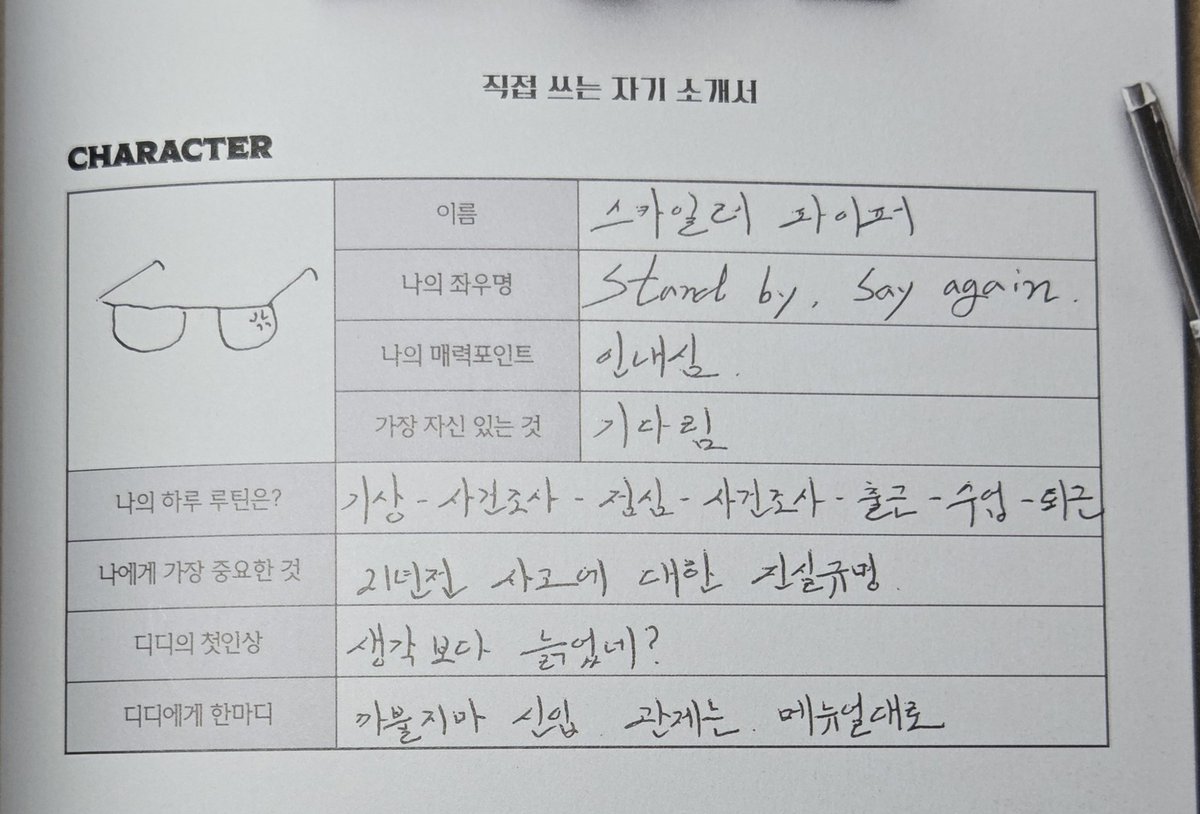 직접 쓰는 자기 소개서
CHARACTER
이름 스카일러 파이퍼
나의 좌우명 Stand by, Say again.
나의 매력포인트 인내심.
가장 자신 있는 것 기다림
나의 하루 루틴은? 기상 - 사건조사 - 점심 - 사건조사 - 출근 - 수업 - 퇴근
나에게 가장 중요한 것 21년전 사고에 대한 진실규명.
디디의 첫인상 생각보다 늙었네?
디디에게 한마디 까불지마 신입. 관제는. 메뉴얼대로